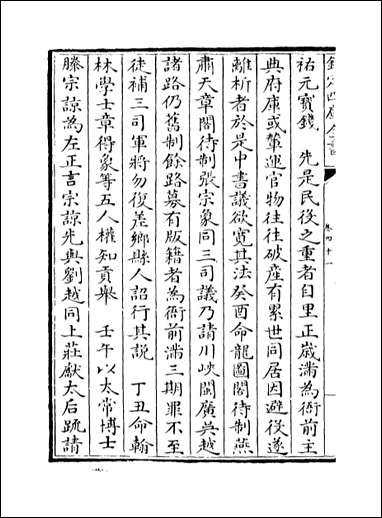 欽定四庫全書
卷四十一
祐元寳錢　先是民役之重者自里正嵗滿為衙前主
典府庫或輦運官物往往破產有累世同居因避役遂
離析者於是中書議欲寛其法癸酉命龍圖閣待制燕
肅天章閣待制張宗象同三司議乃請川峽閩廣吳越
諸路仍舊制餘路募有版籍者為衙前滿三期罪不至
徒補三司軍將勿復差鄉縣人詔行其說　丁丑命翰
林學士章得象等五人權知貢舉　壬午以太常博士
滕宗諒為左正言宗諒先與劉越同上莊獻太后䟽請